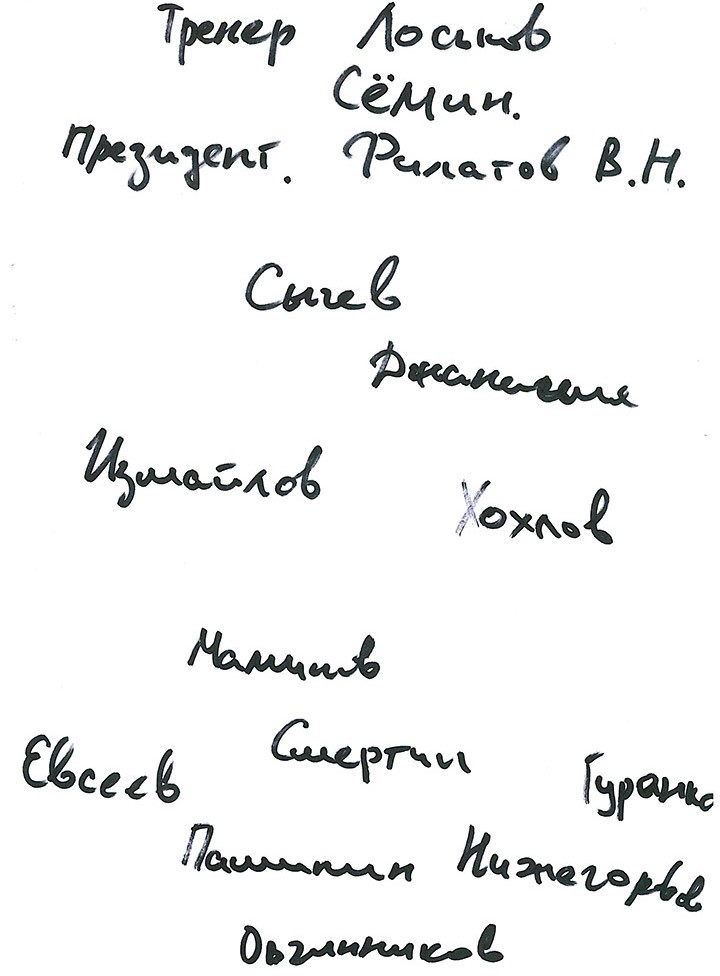 Тренер Лоськов
Сёмин.
Президент. Филатов В.Н.
Сычев
Джанашия
Измайлов
Хохлов
Маминов
Смертин
Евсеев
Гуренко
Пашинин Нижегородов
Овчинников